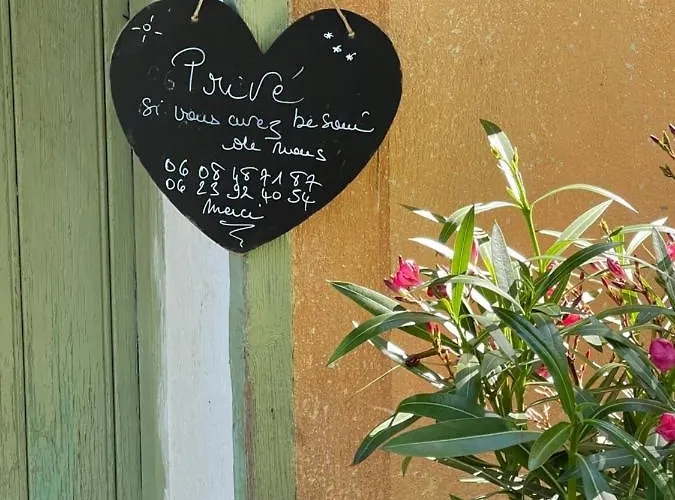 Privé
si vous avez besoin
de nous
06 08 48 71 87
06 23 92 40 54
Merci